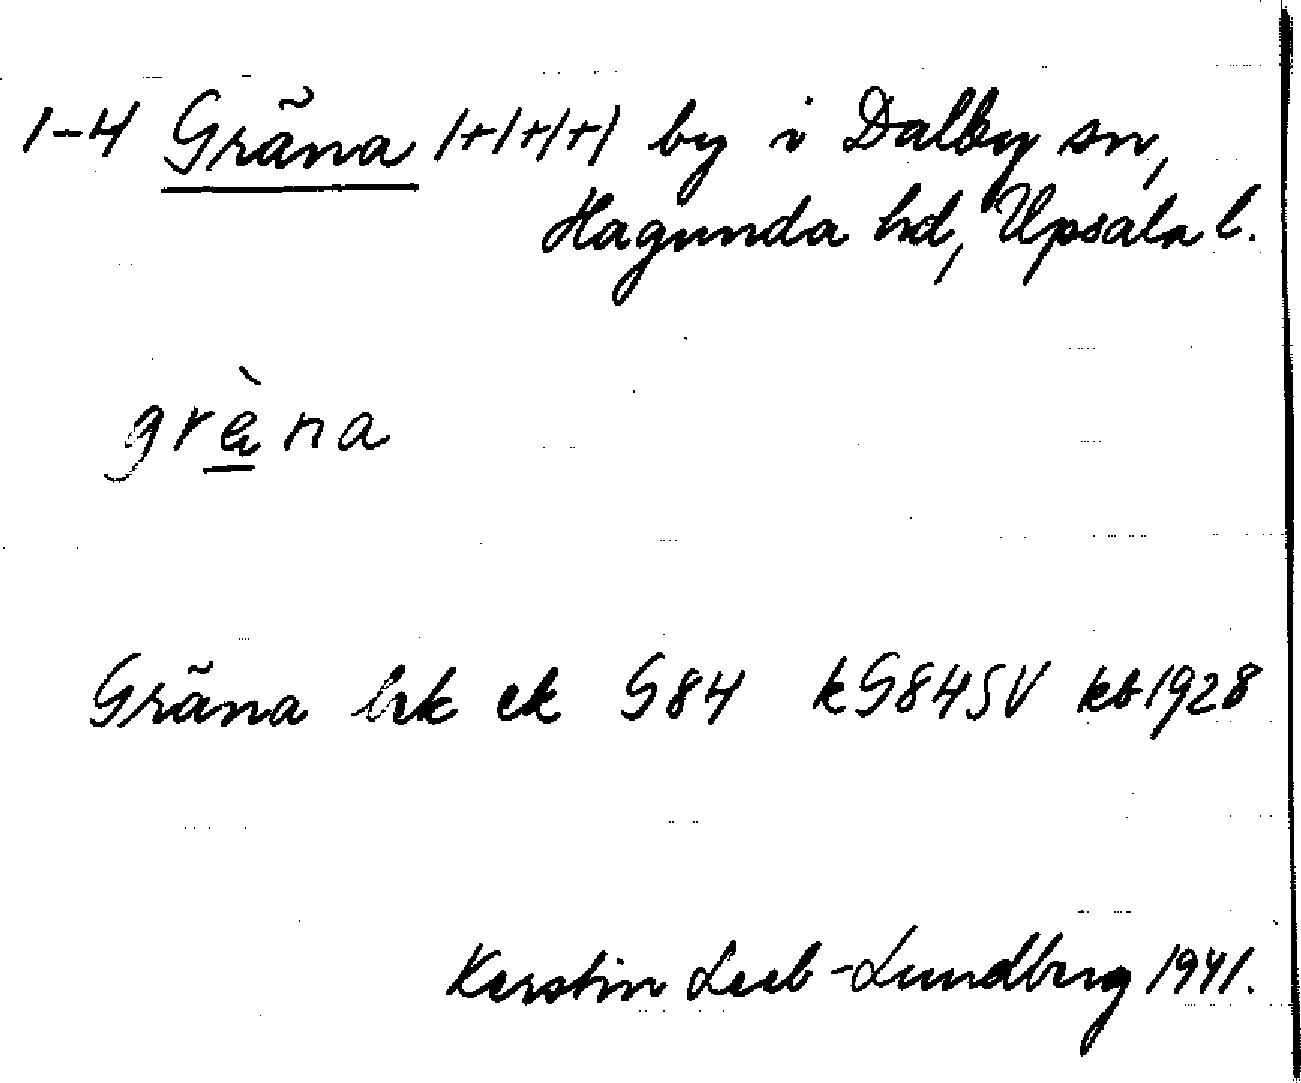 1-4 Gräna 1+1+1+1 by i Dalby sn,
Hagunda hd, Upsala l.
grèna
Gräna hrk ek G84 kG84SV kb1928
Kerstin Leeb-Lundberg 1941.